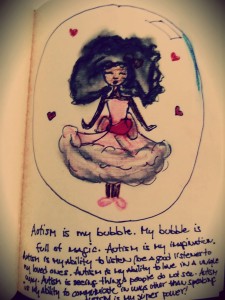 Autism is my bubble. My bubble is
full of magic. Autism is my inspiration.
Autism is my ability to listen/be a good listener to
my loved ones. Autism is my ability to love in a unique
way. Autism is seeing things people do not see. Autism
is my ability to communicate in ways other than speaking.
Autism is my super power!